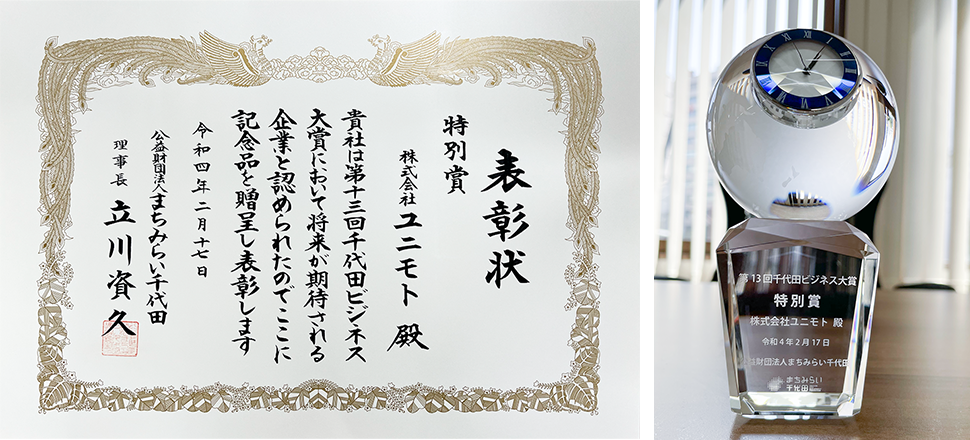 表彰状
特別賞
株式会社ユニモト 殿
貴社は第十三回千代田ビジネス
大賞において将来が期待される
企業と認められたのでここに
記念品を贈呈し表彰します
令和四年二月十七日
公益財団法人まちみらい千代田
理事長 立川資久
XII
第13回千代田ビジネス大賞
特別賞
株式会社ユニモト 殿
令和4年2月17日
益財団法人まちみらい千代田
まちみらい
千代田